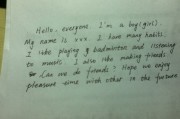 Hello, everyone I'm a boy(girl).
My name is xxx. I have many habits.
I like playing badminton and listening
to music. I also like making friends.
Can we do friends? Hope we enjoy
pleasant time with other in the future